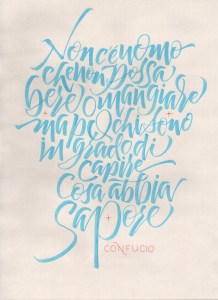 Non c'è uomo
che non possa
bere o mangiare
ma pochi sono
in grado di
capire
cosa abbia
sapore
CONFUCIO